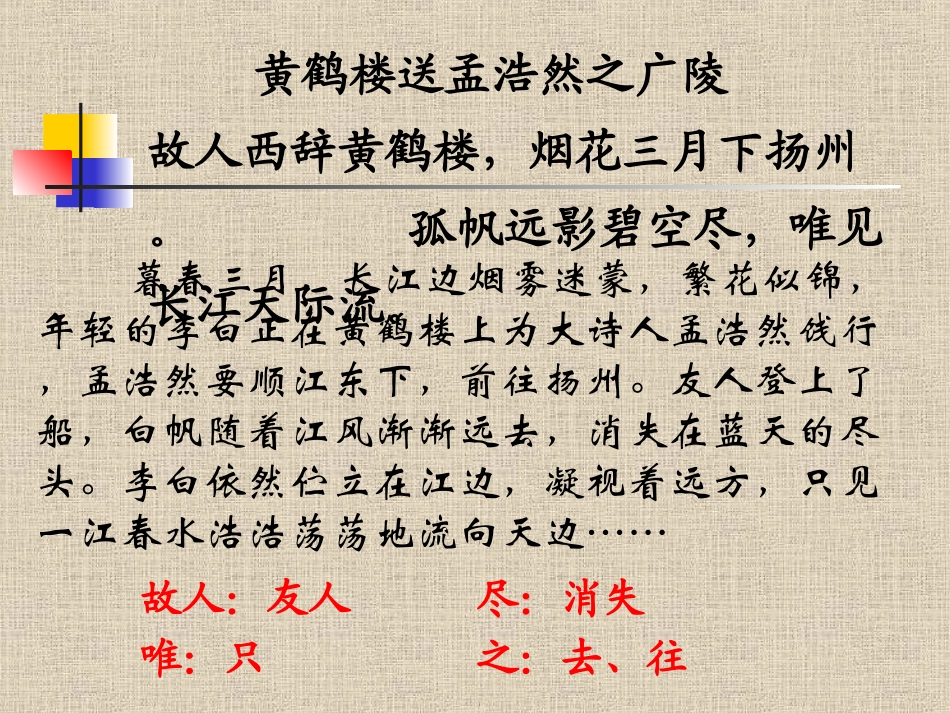 黄鹤楼送孟浩然之广陵
故人西辞黄鹤楼，烟花三月下扬州
。 孤帆远影碧空尽，唯见
长江天际流。
暮春三月，长江边烟雾迷蒙，繁花似锦，
年轻的李白正在黄鹤楼上为大诗人孟浩然饯行
，孟浩然要顺江东下，前往扬州。友人登上了
船，白帆随着江风渐渐远去，消失在蓝天的尽
头。李白依然伫立在江边，凝视着远方，只见
一江春水浩浩荡荡地流向天边……
故人：友人 尽：消失
唯：只 之：去、往